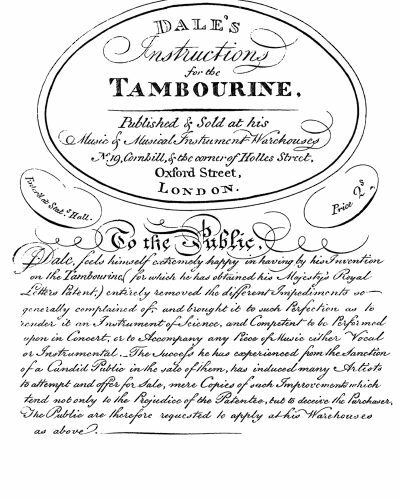 DALE'S
Instructions
for the
TAMBOURINE.
Published & Sold at his
Music & Musical Instrument Warehouses
No. 19, Cornhill, & the corner of Holles Street,
Oxford Street,
LONDON.
Enter'd at Stats. Hall.
Price 2s.
To the Public.
P Dale, feels himself extremely happy in having by his Invention
on the Tambourine, (for which he has obtained his Majesty's Royal
Letters Patent,) entirely removed the different Impediments so
generally complained of, and brought it to such Perfection as to
render it an Instrument of Science, and Competent to be Performed
upon in Concert, or to Accompany any Piece of Music either Vocal
or Instrumental. The Success he has experienced from the Sanction
of a Candid Public in the sale of them, has induced many Artists
to attempt and offer for Sale, mere Copies of such Improvements which
tend not only to the Prejudice of the Patentee, but to deceive the Purchaser.
The Public are therefore requested to apply at his Warehouses
as above.